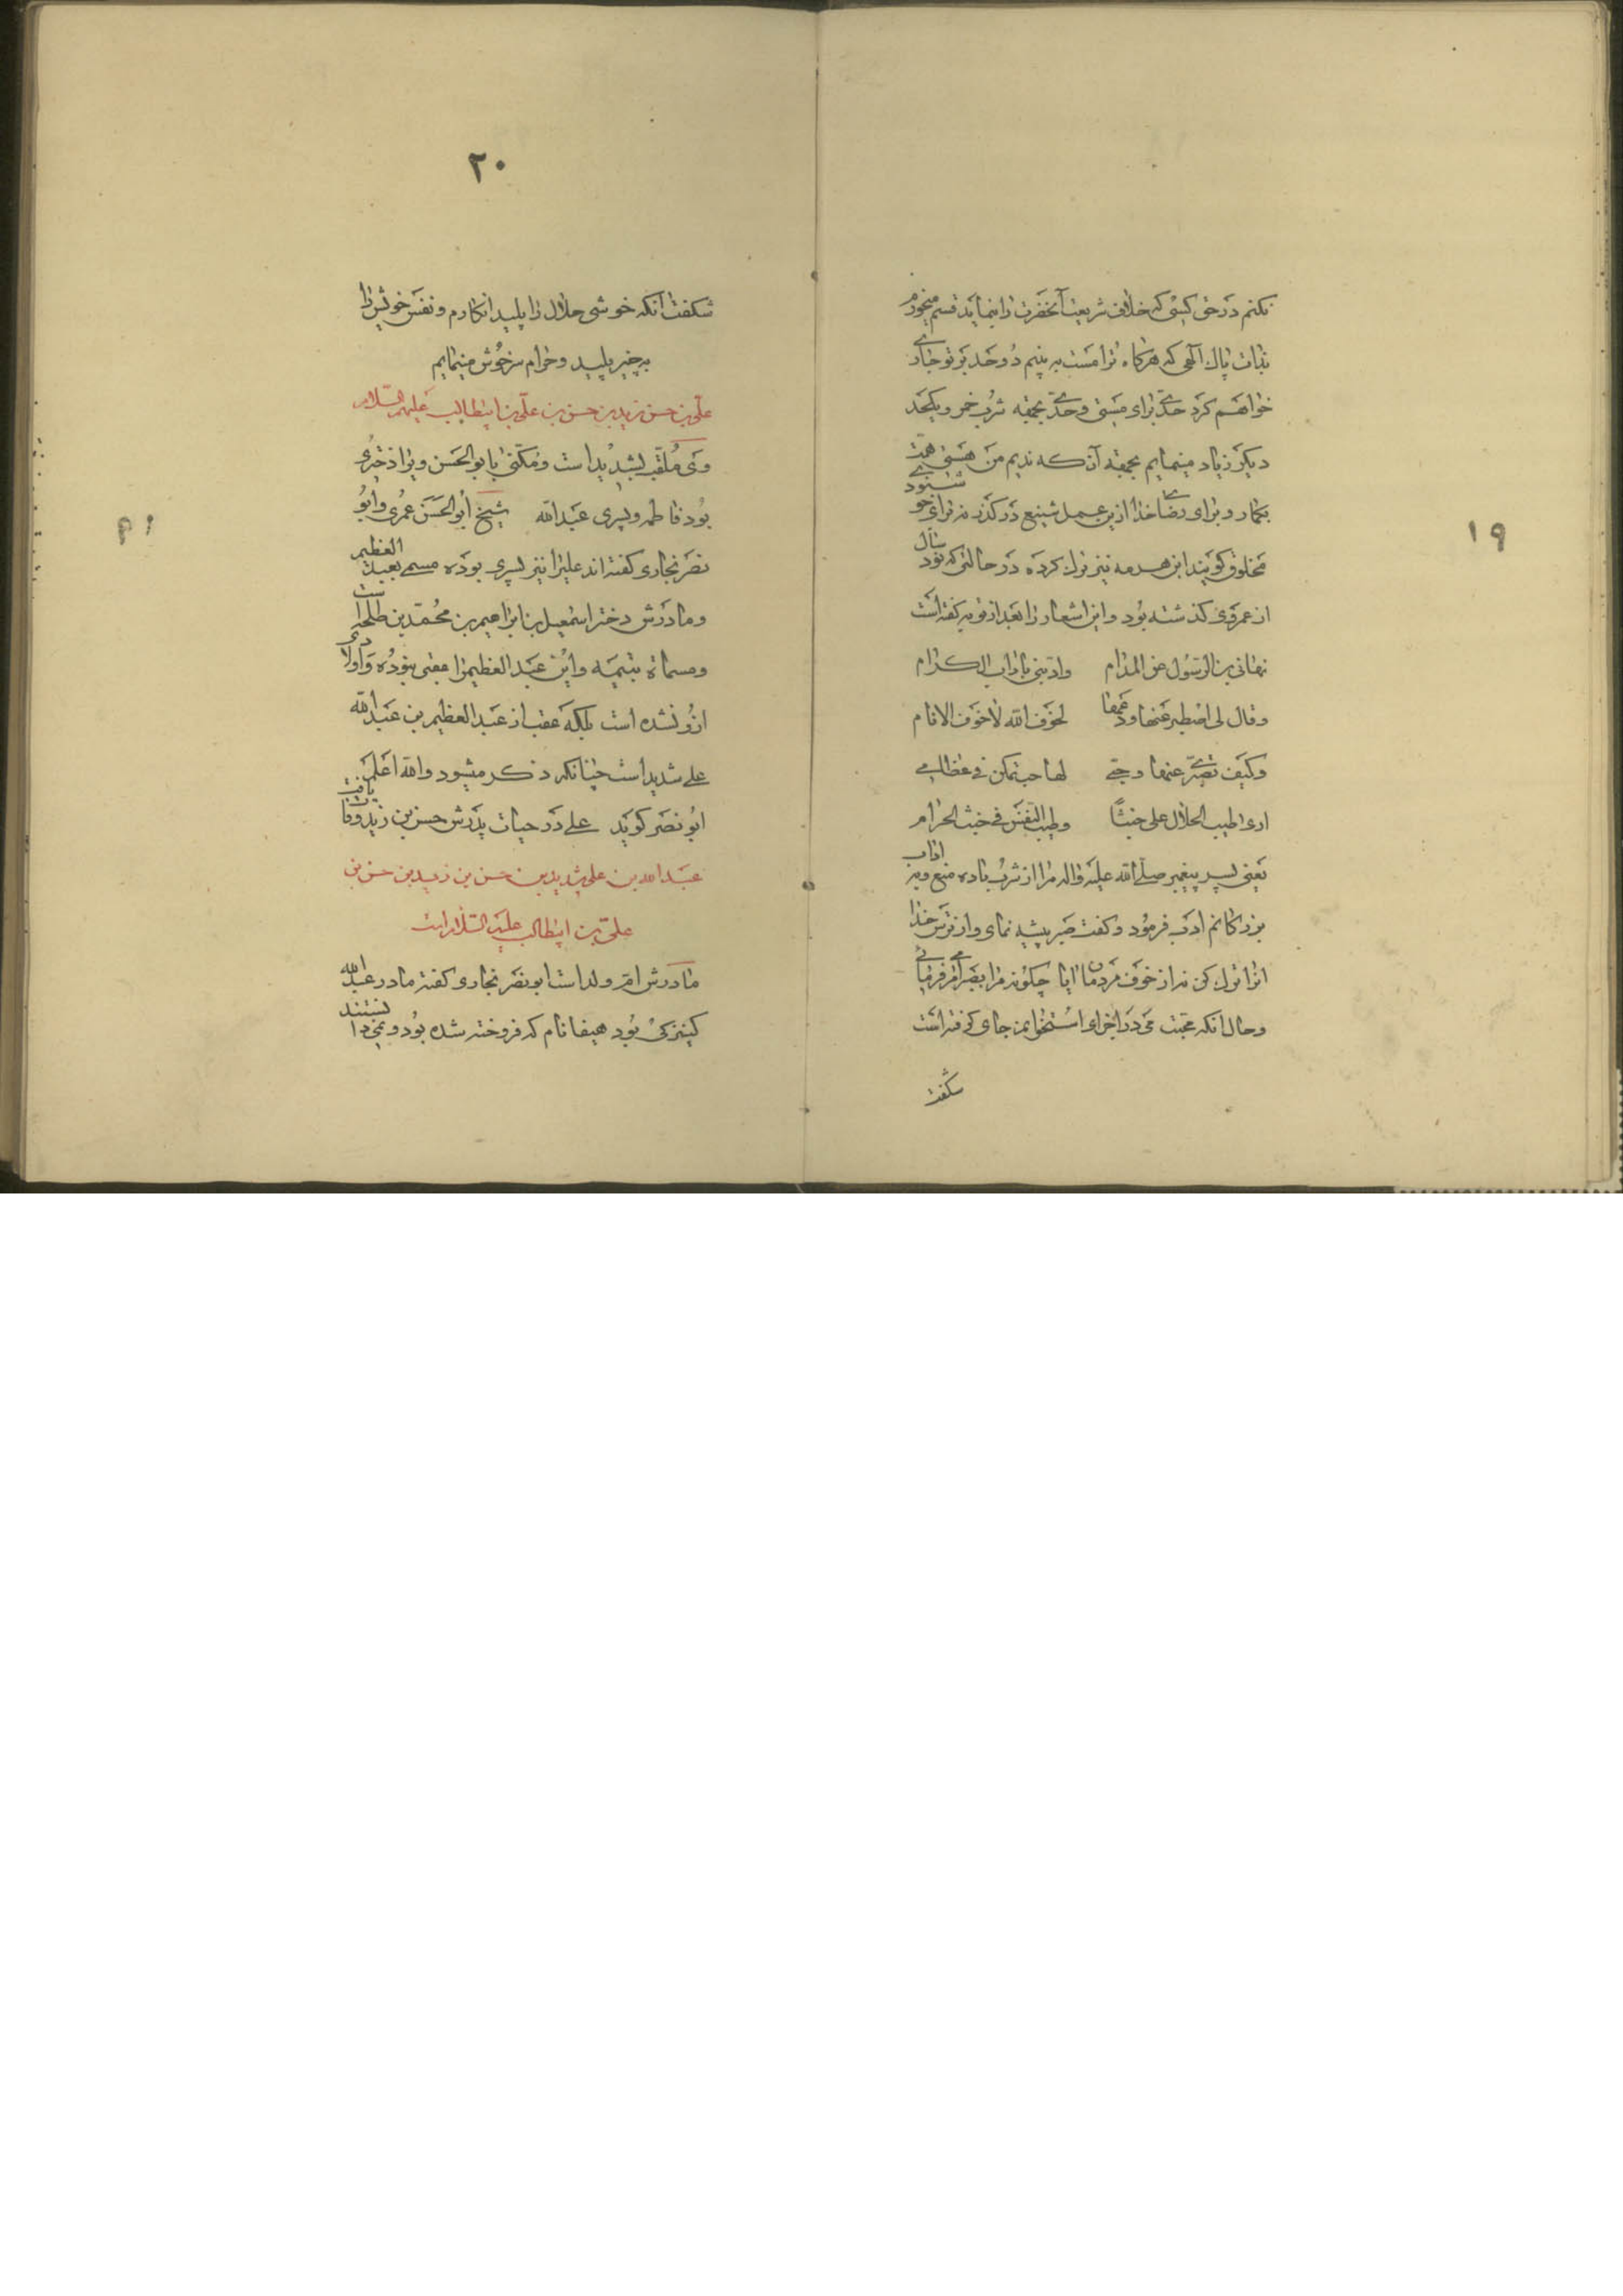 ۱۹
نکنم در حق کسی که خلاف شریعت آنحضرت را بنماید قسم میخورم
بذات پاک آلهی که هرگاه ترا مست به بینم دو حد بر تو جاری
خواهم کرد حدی برای مستی و حدی بجهة شرب خمر و یکحد
دیگر زیاد مینمایم بجهة آن که ندیم من هستی همت
بگمار و برای رضای خدا ازین عمل شنیع درگذر نه برای خوشنودی
مخلوق گویند ابن هرمه نیز ترک کرده در حالتی که نود سال
از عمر وی گذشته بود و این اشعار را بعد از توبه گفته است
نهانی بن الرسول عن المدام وادبنی باداب الکرام
وقال لی اصطبر عنها ودعها لخوف الله لا خوف الانام
وکیف تصبری عنها وحبی لها حب تمکن فی عظامی
اری طیب الحلال علی خبثا وطیب النفس فی خبث الحرام
یعنی پسر پیغمبر صلی الله علیه و اله مرا از شرب باده منع و به اداب
بزرگانم ادب فرمود و گفت صبر پیشه نمای و از ترس خدا
انرا ترک کن نه از خوف مردمان ایا چگونه مرا بصبر امر فرمائی
و حال انکه محبت می در اجزای استخوانم جای گرفته است
شگفت
۲۰
شگفت آنکه خوشی حلال را پلید انگارم و نفس خویش را
به چیز پلید و حرام سرخوش مینمایم
علی بن حسن بن زید بن حسن بن علی بن ابیطالب علیهم السلام
وی ملقب بشدید است و مکنی بابو الحسن ویرا دختری
بود فاطمه و پسری عبدالله شیخ ابو الحسن عمری و ابو
نصر نجاری گفته اند علیرا نیز پسری بوده مسمی بعبد العظیم
و مادرش دختر اسمعیل بن ابراهیم بن محمد بن طلحه است
و مسماة بتیمیه و این عبد العظیم را عقبی نبوده و اولادی
ازو نشده است بلکه عقب از عبد العظیم بن عبدالله
علی شدید است چنانکه ذکر میشود والله اعلم
ابو نصر گوید علی در حیات پدرش حسن بن زید وفات یافت
عبدالله بن علی شدید بن حسن بن زید بن حسن بن
علی بن ابیطالب علیه السلام است
مادرش ام ولد است ابو نصر نجاری گفته مادر عبدالله
کنیزکی بود هیفا نام که فروخته شده بود و نمی دانستند